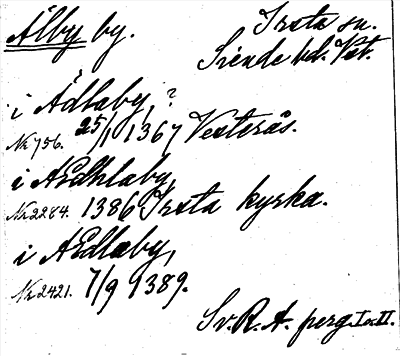 Älby by. Irsta sn.
Siende hd. Vst.
i Ädlaby,?
No 756. 25/1 1367 Vesterås.
i Ædhlaby,
No 2284. 1386 Irsta kyrka.
i Ædlaby,
No 2421. 7/9 1389.
Sv. R. A. perg. I o. II.